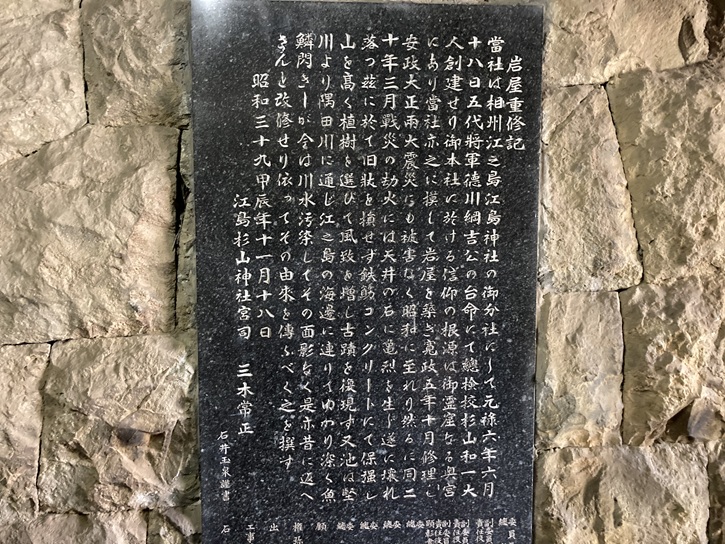 岩屋重修記
當社は相州江之島江島神社の御分社にして元祿六年六月
十八日五代將軍德川綱吉公の台命にて總検校杉山和一大
人創建せり御本社に於ける信仰の根源は御霊窟なる奥宮
にあり當社亦之に摸して岩屋を築き寬政五年十月修理し
安政大正両大震災にも被害なく昭和に至れり然るに同二
十年三月戰災の劫火には天井の石に亀烈を生ジ遂に壊れ
落つ玆に於て旧狀を損せず鉄筋コンクリートにて保强し
山を髙く植樹を選びて風致を增し古蹟を復現す又池は竪
川より隅田川に通じ江之島の海邊に連りてゆかり深く魚
鱗閃きしが今は川水汚染してその面影なく是亦昔に返へ
さんと改修せり依ってその由來を傳ふべく之を撰す
昭和三十九甲辰年十一月十八日
江島杉山神社宮司 三木常正
石井玉泉謹書
委員
總
副委員
責任役
副委員
責任役
副委員
責任役
顕彰會
委
總
委
總
委
總
顧
推
出
工事
石